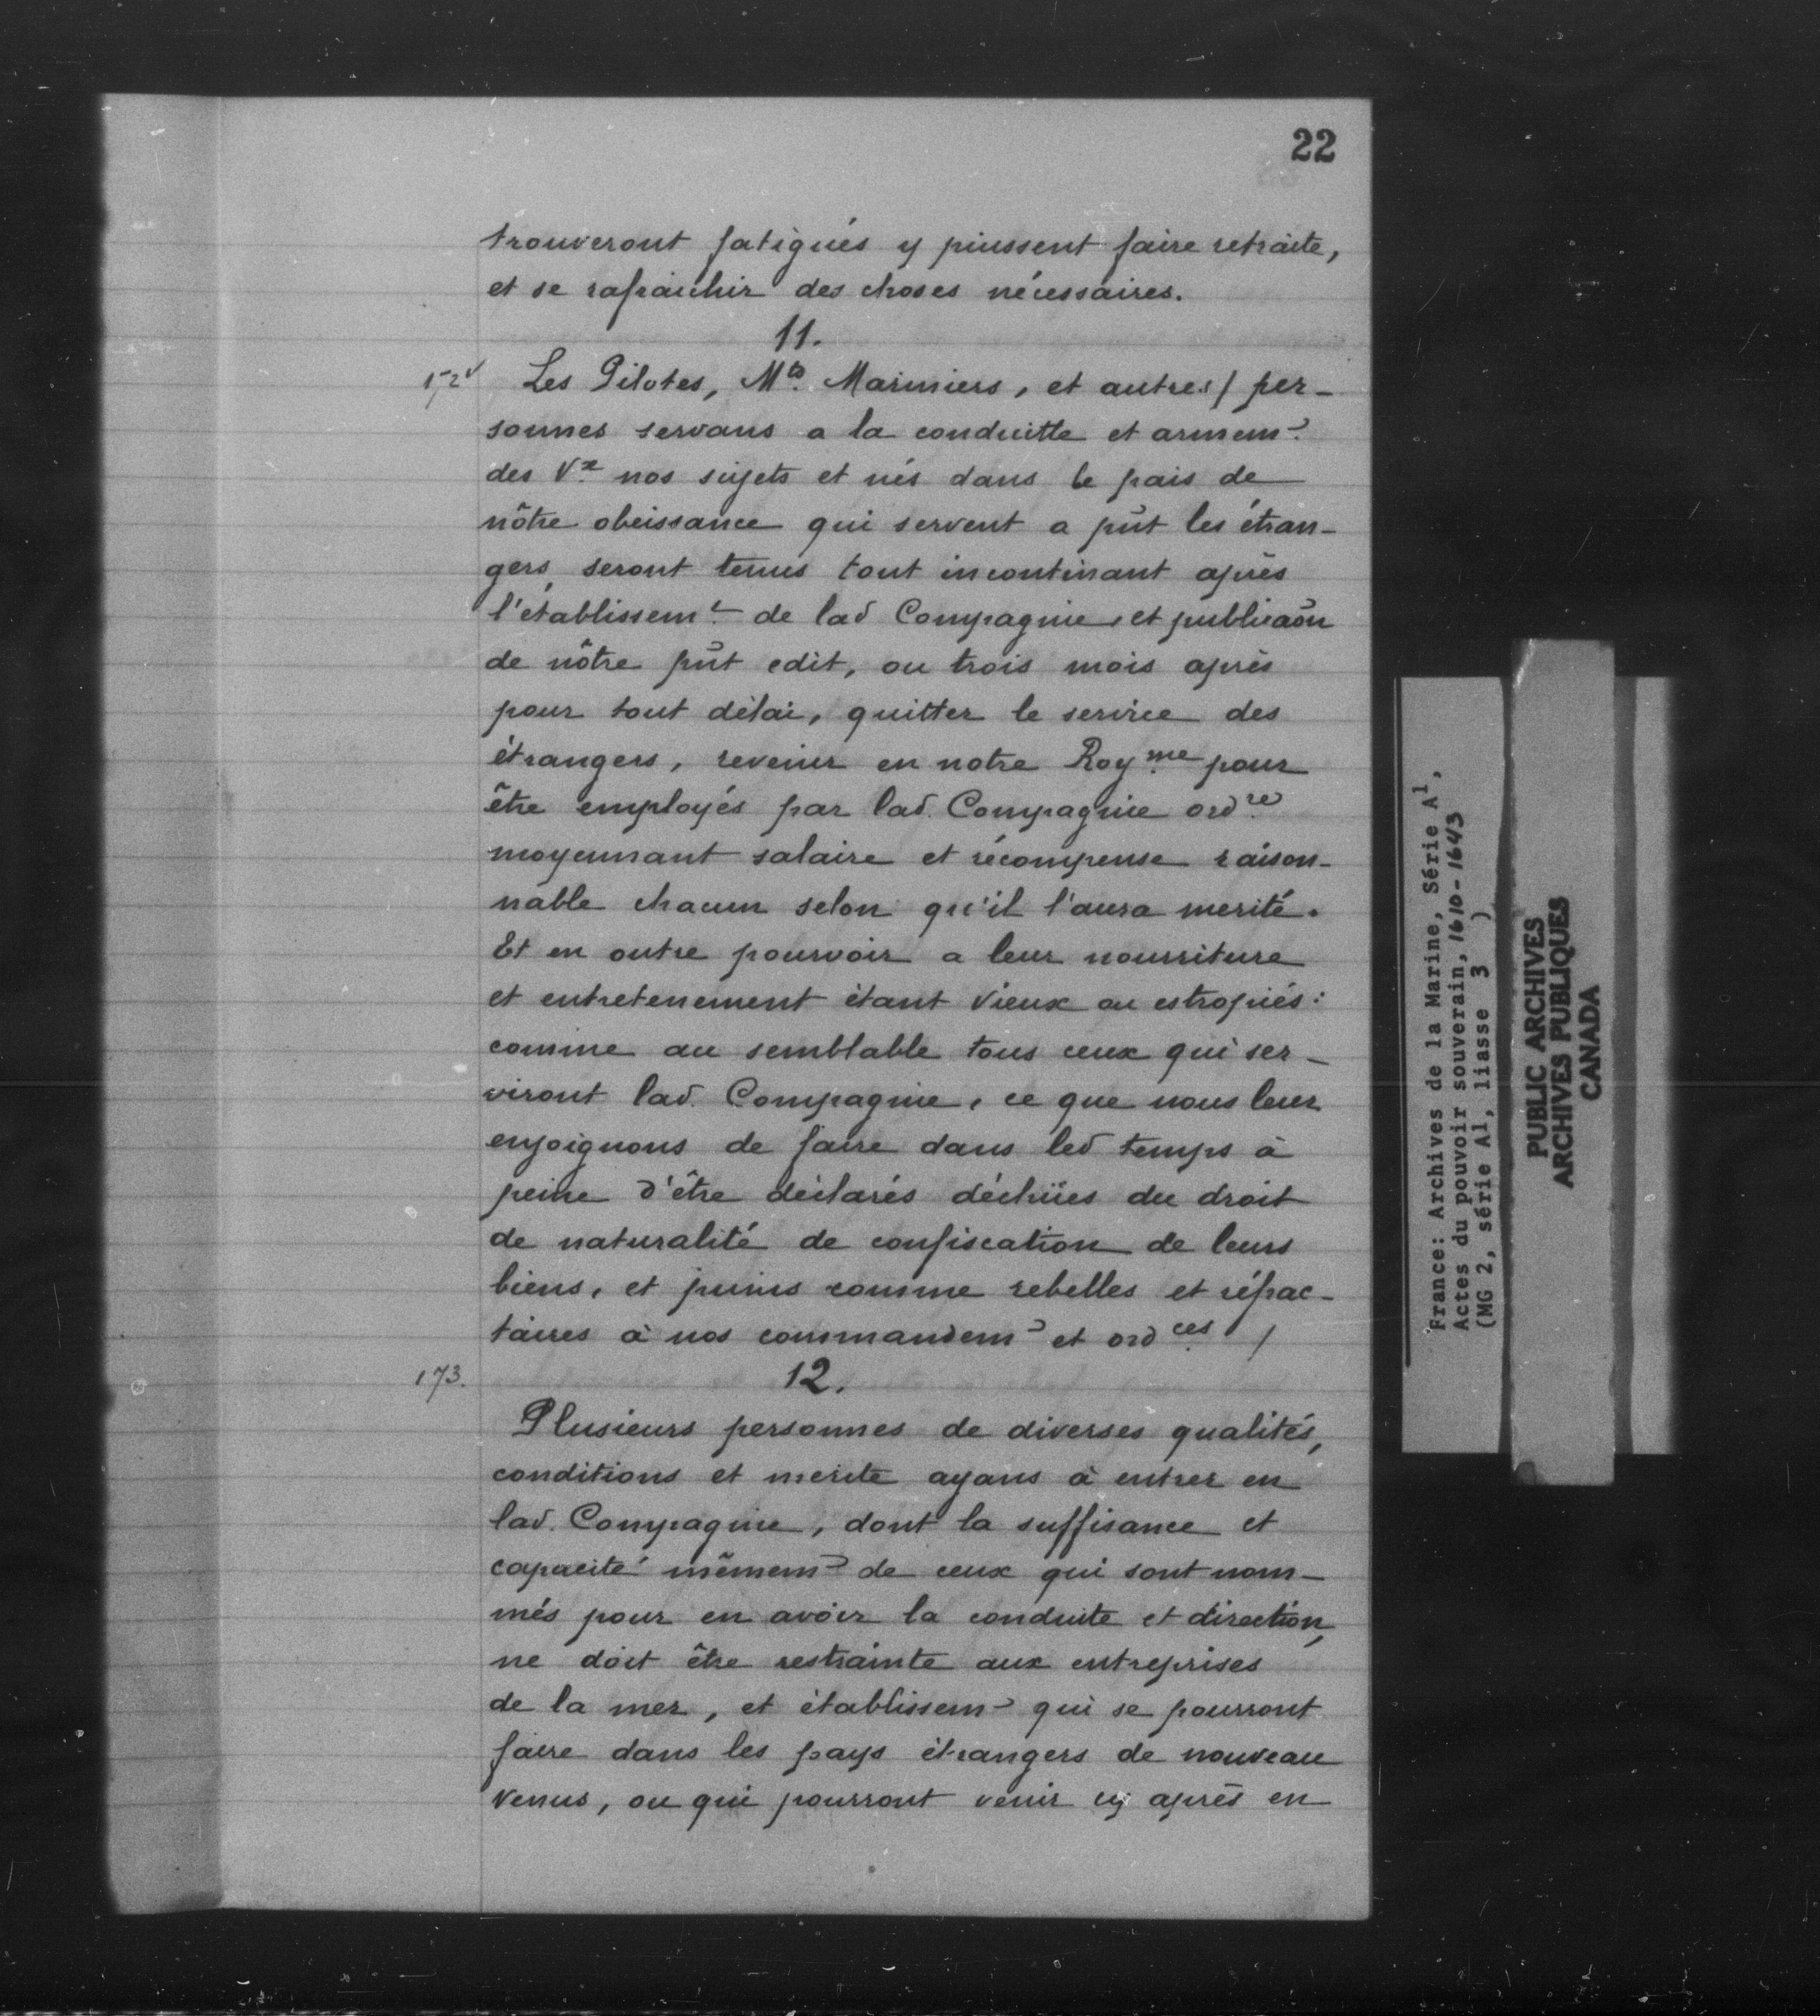 22
trouveront fatigués y puissent faire retraite,
et se rafraichir des choses nécessaires.
11.
172v
Les Pilotes, Mts Mariniers, et autres / per-
sonnes servans a la conduitte et armemt
des Vx nos sujets et nés dans le pais de
nôtre obeissance qui servent a pñt les étran-
gers, seront tenus tout incontinant après
l'établissemt de lad Compagnie, et publicaõn
de nôtre pñt edit, ou trois mois après
pour tout délai, quitter le service des
étrangers, revenir en notre Royme pour
être employés par lad. Compagnie ordre
moyennant salaire et récompense raison-
nable chacun selon qu'il l'aura merité.
Et en outre pourvoir a leur nourriture
et entretenement étant vieux ou estropiés:
comme au semblable tous ceux qui ser-
viront lad. Compagnie, ce que nous leur
enjoignons de faire dans led temps à
peine d'être déclarés déchües du droit
de naturalité de confiscation de leurs
biens, et punis comme rebelles et réfrac-
taires à nos commandemt et ordces /
173.
12.
Plusieurs personnes de diverses qualités,
conditions et merite ayans à entrer en
lad. Compagnie, dont la suffisance et
capacité mêmemt de ceux qui sont nom-
més pour en avoir la conduite et direction,
ne doit être restrainte aux entreprises
de la mer, et établissemt qui se pourront
faire dans les pays étrangers de nouveau
venus, ou qui pourront venir cy après en
France: Archives de la Marine, Série A1,
Actes du pouvoir souverain, 1610-1643
(MG 2, série A1, liasse 3 )
PUBLIC ARCHIVES
ARCHIVES PUBLIQUES
CANADA